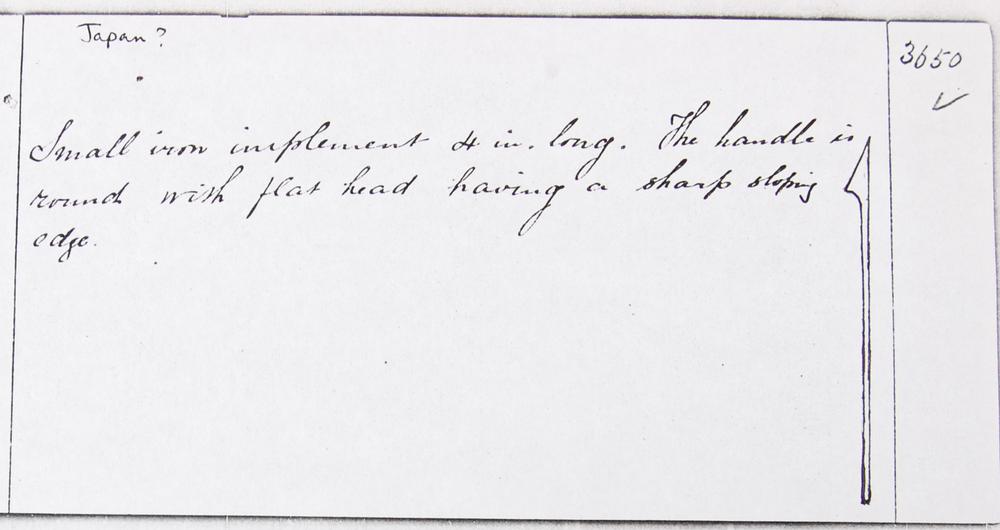 Japan?
3650
Small iron implement 4 in. long. The handle is
round with flat head having a sharp sloping
edge.